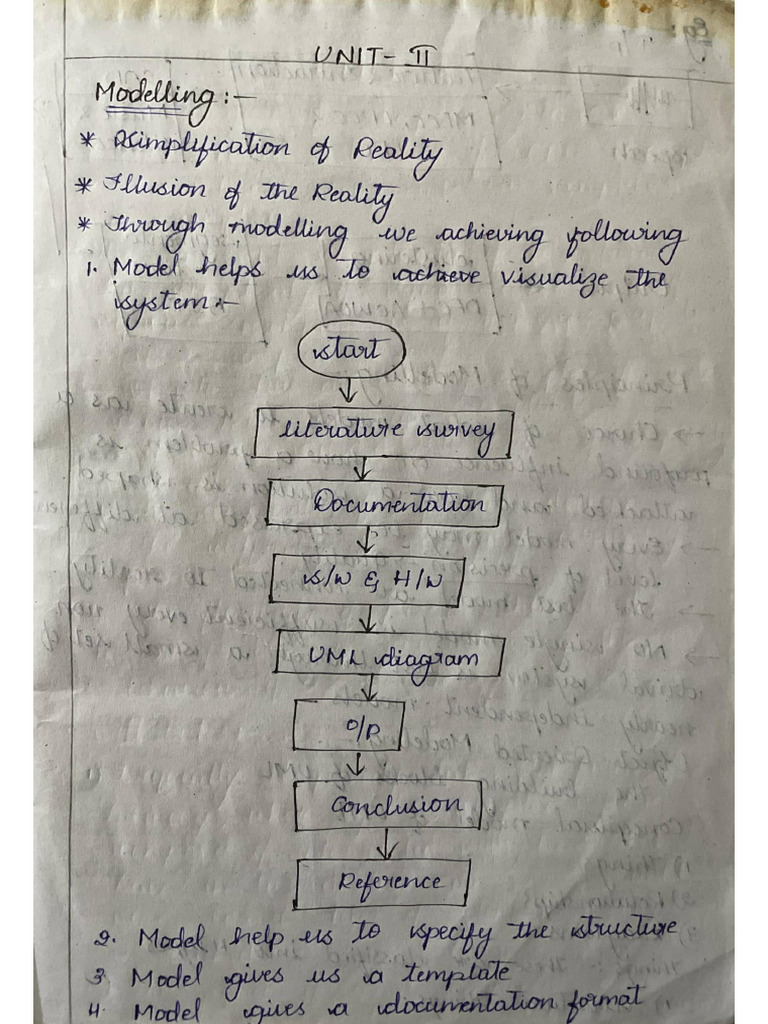 UNIT - II
Modelling :-
* Simplification of Reality
* Illusion of the Reality
* Through modelling we achieving following
1. Model helps us to achieve visualize the
system :-
start
literature survey
Documentation
S/W & H/W
UML diagram
O/P
Conclusion
Reference
2. Model help us to specify the structure
3. Model gives us a template
4. Model gives a documentation format